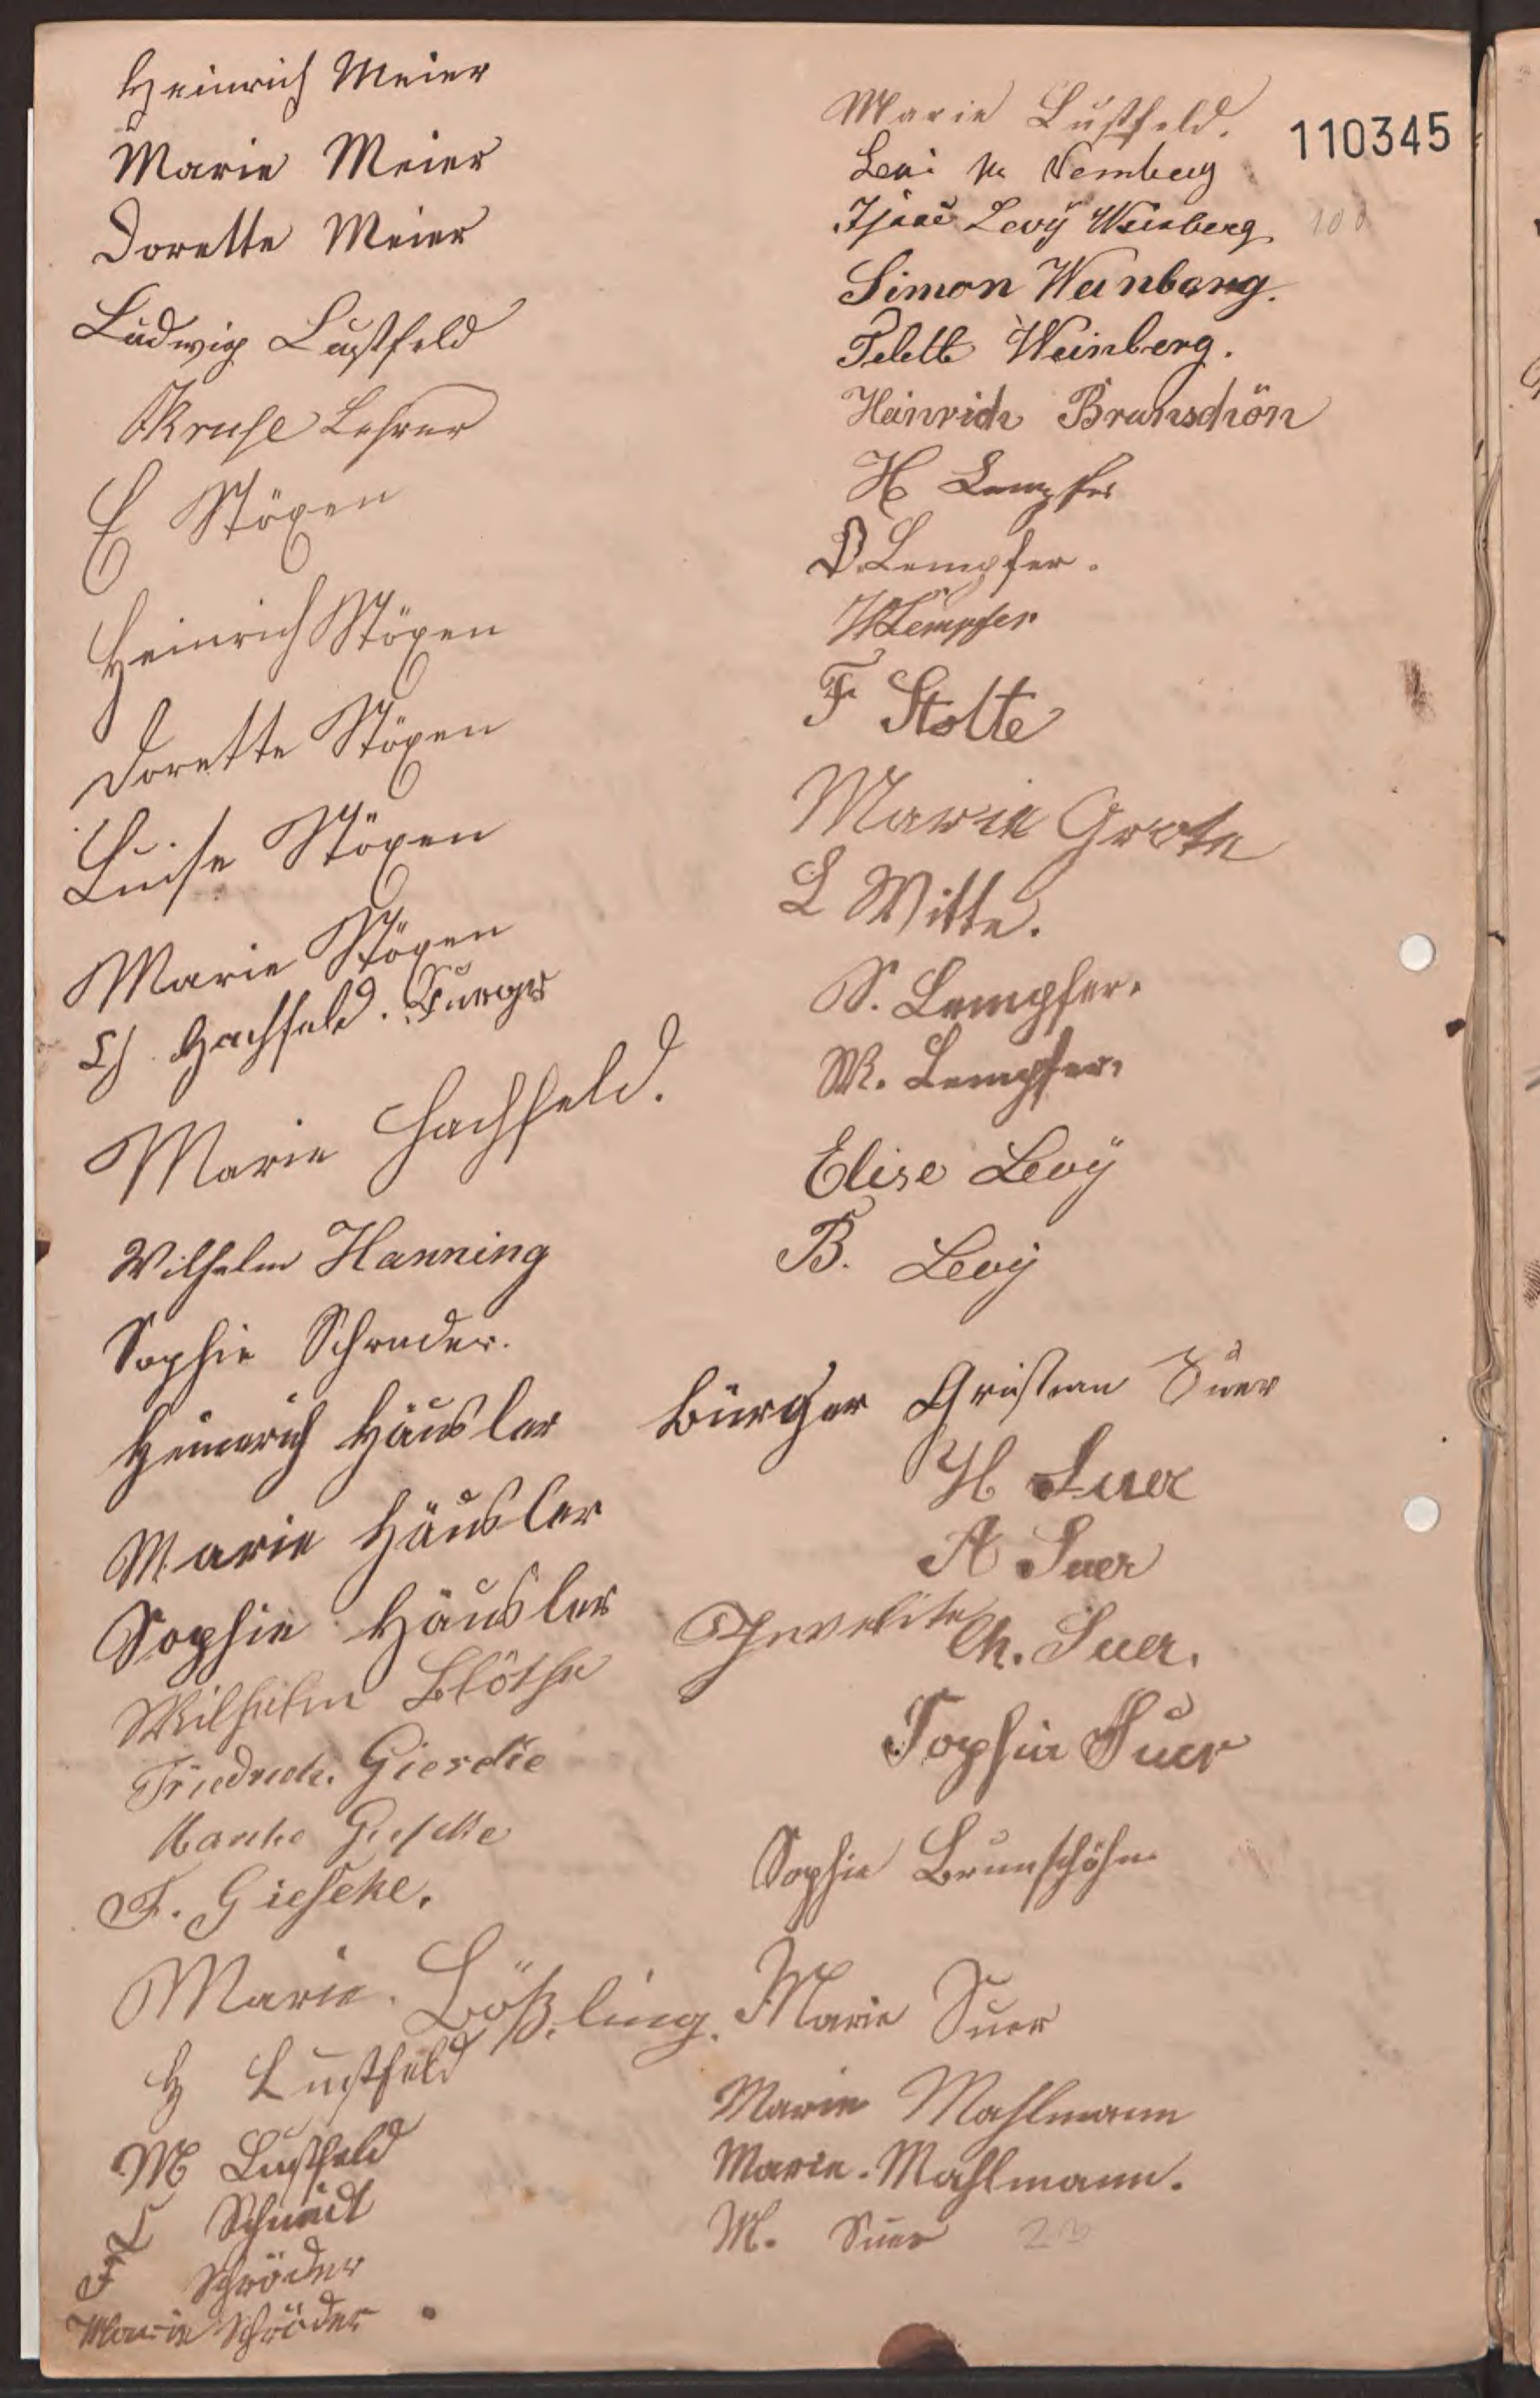 Heinrich Meier
Marie Meier
Dorette Meier
Ludwig Lustfeld
Kruse Lehrer
E Stöxen
Heinrich Stöxen
Dorette Stöxen
Luise Stöxen
Marie Stöxen
Hachfeld.
Marie Hachfeld.
Wilhelm Hanning
Sophie Schrader.
Heinerich Häusler
Marie Häusler
Sophie Häusler
Wilhelm Blöthe
Friedrich. Giesecke
Gieseke
F. Gieseke.
Marie. Bößling.
H Lustfeld
M Lustfeld
L Schmidt
F Schröder
Marie Schröder
Marie Lustfeld.
110345
Isaac Levÿ Weinberg
100
Simon Weinberg.
Weinberg.
Heinrich Brunschön
H Lempfer
D. Lempfer.
W Lempfer
F Stolte
Marie Grote
L Witte.
S. Lempfer.
W. Lempfer.
Elise Levÿ
B. Levÿ
Bürger Gristian Suer
H Suer
A Suer
Ch. Suer.
Sophie Suer
Sophie Brunschöhn
Marie Suer
Marie Mahlmann
Marie. Mahlmann.
M. Suer 23